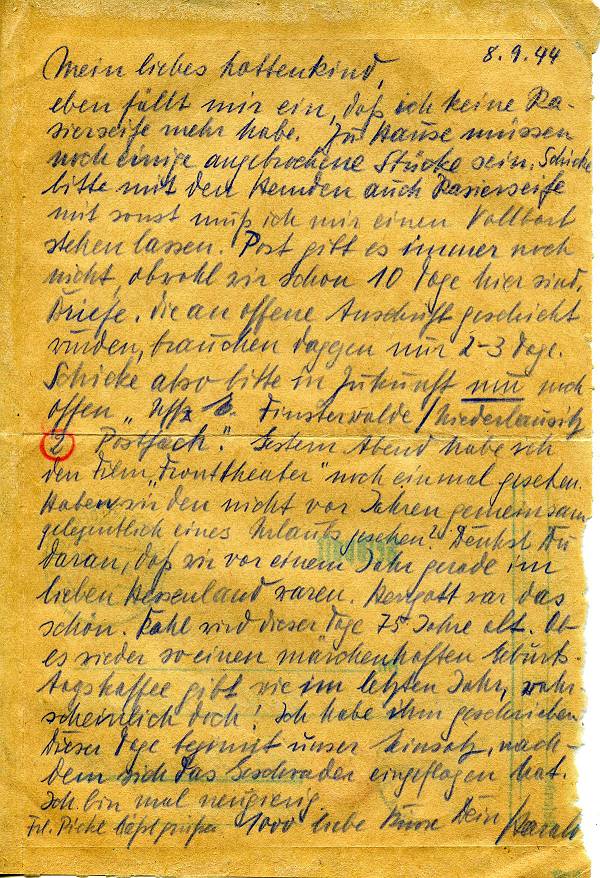 8.9.44
Mein liebes Lottenkind,
eben fällt mir ein, daß ich keine Ra-
sierseife mehr habe. Zu Hause müssen
noch einige angebrochene Stücke sein. Schicke
bitte mit den Hemden auch Rasierseife
mit sonst muß ich mir einen Vollbart
stehen lassen. Post gibt es immer noch
nicht, obwohl wir schon 10 Tage hier sind.
Briefe, die an offene Anschrift geschickt
wurden, brauchen dagegen nur 2-3 Tage.
Schicke also bitte in Zukunft nur noch
offen „Uffz Finsterwalde / Niederlausitz
2 Postfach". Gestern Abend habe ich
den Film „Fronttheater" noch einmal gesehen.
Haben wir den nicht vor Jahren gemeinsam
gelegentlich eines Urlaubs gesehen? Denkst Du
daran, daß wir vor einem Jahr gerade im
lieben Hessenland waren. Herrgott war das
schön. Kahl wird dieser Tage 75 Jahre alt. Ob
es wieder so einen märchenhaften Geburts-
tagskaffee gibt wie im letzten Jahr, wahr-
scheinlich doch! Ich habe ihm geschrieben.
Dieser Tage beginnt unser Einsatz, nach-
dem sich das Geschwader eingeflogen hat.
Ich bin mal neugierig.
1000 liebe Küsse Dein Harald
Frl. Pickl läßt grüßen